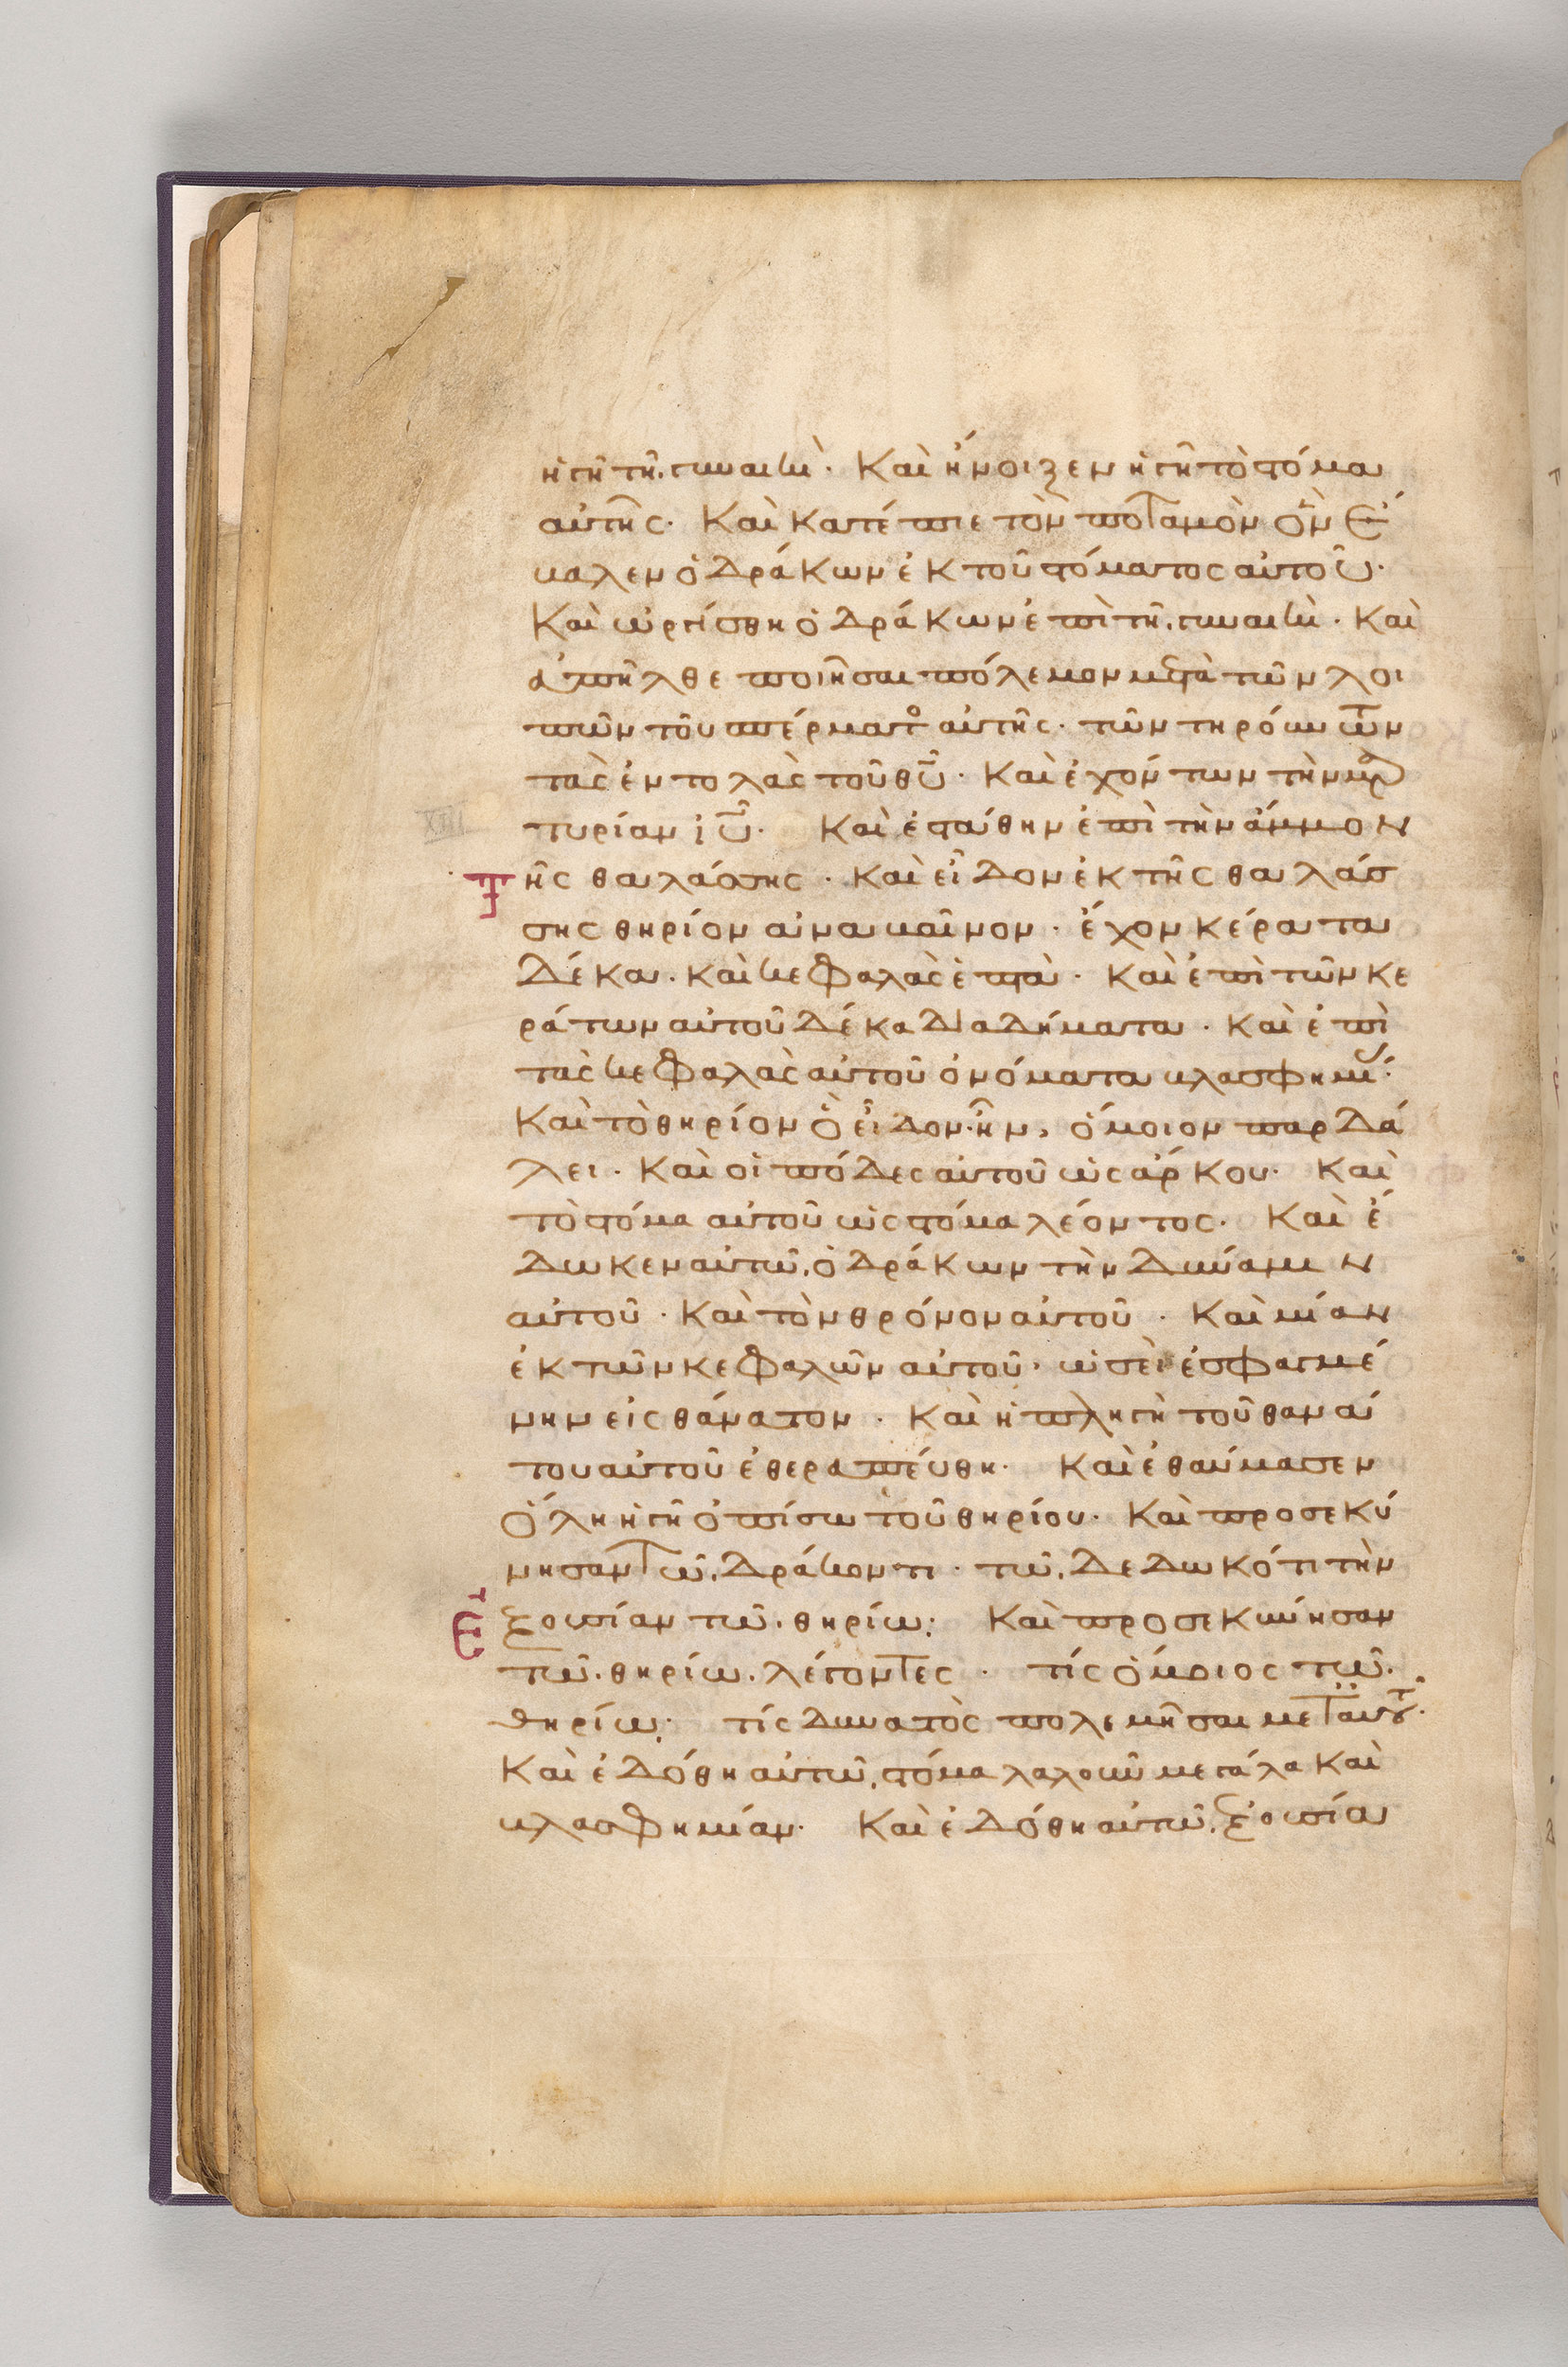 ἡ γῆ τῆ γυναικὶ· Καὶ ἤνοιξεν ἡ γῆ τὸ στόμα
αὐτῆς· Καὶ κατέπιε τὸν ποταμὸν ὃν ἔ
βαλεν ὁ δράκων ἐκ τοῦ στόματος αὐτοῦ·
Καὶ ὠργίσθη ὁ δράκων ἐπὶ τῆ γυναικὶ· Καὶ
ἀπῆλθε ποιῆσαι πόλεμον μετὰ τῶν λοι
πῶν τοῦ σπέρματο αὐτῆς· τῶν τηρούντων
τὰς ἐντολὰς τοῦ θυ· Καὶ ἐχόντων τὴν μαρ
τυρίαν ιυ· Καὶ ἐστάθην ἐπὶ τὴν ἄμμον
XIII
Τῆς θαλάσσης· Καὶ εἶδον ἐκ τῆς θαλάσ
σης θηρίον ἀναβαῖνον· ἔχον κέρατα
δέκα· καὶ κεφαλὰς ἑπτὰ· Καὶ ἐπὶ τῶν κε
ράτων αὐτοῦ δέκα διαδήματα· Καὶ ἐπὶ
τὰς κεφαλὰς αὐτοῦ ὀνόματα βλασφημί·
Καὶ τὸ θηρίον ὃ εἶδον ἦν, ὅμοιον παρδά
λει· Καὶ οἱ πόδες αὐτοῦ ὡς ἄρκου· Καὶ
τὸ στόμα αὐτοῦ ὡς στόμα λέοντος· Καὶ ἔ
δωκεν αὐτῶ ὁ δράκων τὴν δύναμιν
αὐτοῦ· Καὶ τὸν θρόνον αὐτοῦ· Καὶ μίαν
ἐκ τῶν κεφαλῶν αὐτοῦ· ὡσεὶ ἐσφαγμέ
νην εἰς θάνατον· Καὶ ἡ πληγὴ τοῦ θανά
του αὐτοῦ ἐθεραπεύθη· Καὶ ἐθαύμασεν
ὅλη ἡ γῆ ὀπίσω τοῦ θηρίου· Καὶ προσεκύ
νησαν τῶ δράκοντι· τῶ δεδωκότι τὴν
Ἐξουσίαν τῶ θηρίω· Καὶ προσεκύνησαν
τῶ θηρίω λέγοντες· τίς ὅμοιος τῶ
θηρίω· τίς δυνατὸς πολεμῆσαι μετ αυτου·
Καὶ ἐδόθη αὐτῶ στόμα λαλοῦν μεγάλα Καὶ
βλασφημίαν· Καὶ ἐδόθη αὐτῶ ἐξουσία